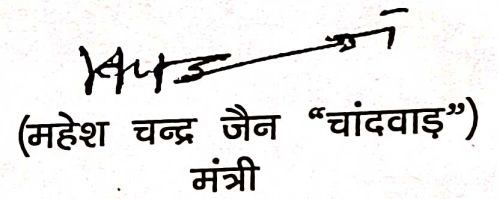 (महेश चन्द्र जैन “चांदवाड़”)
मंत्री